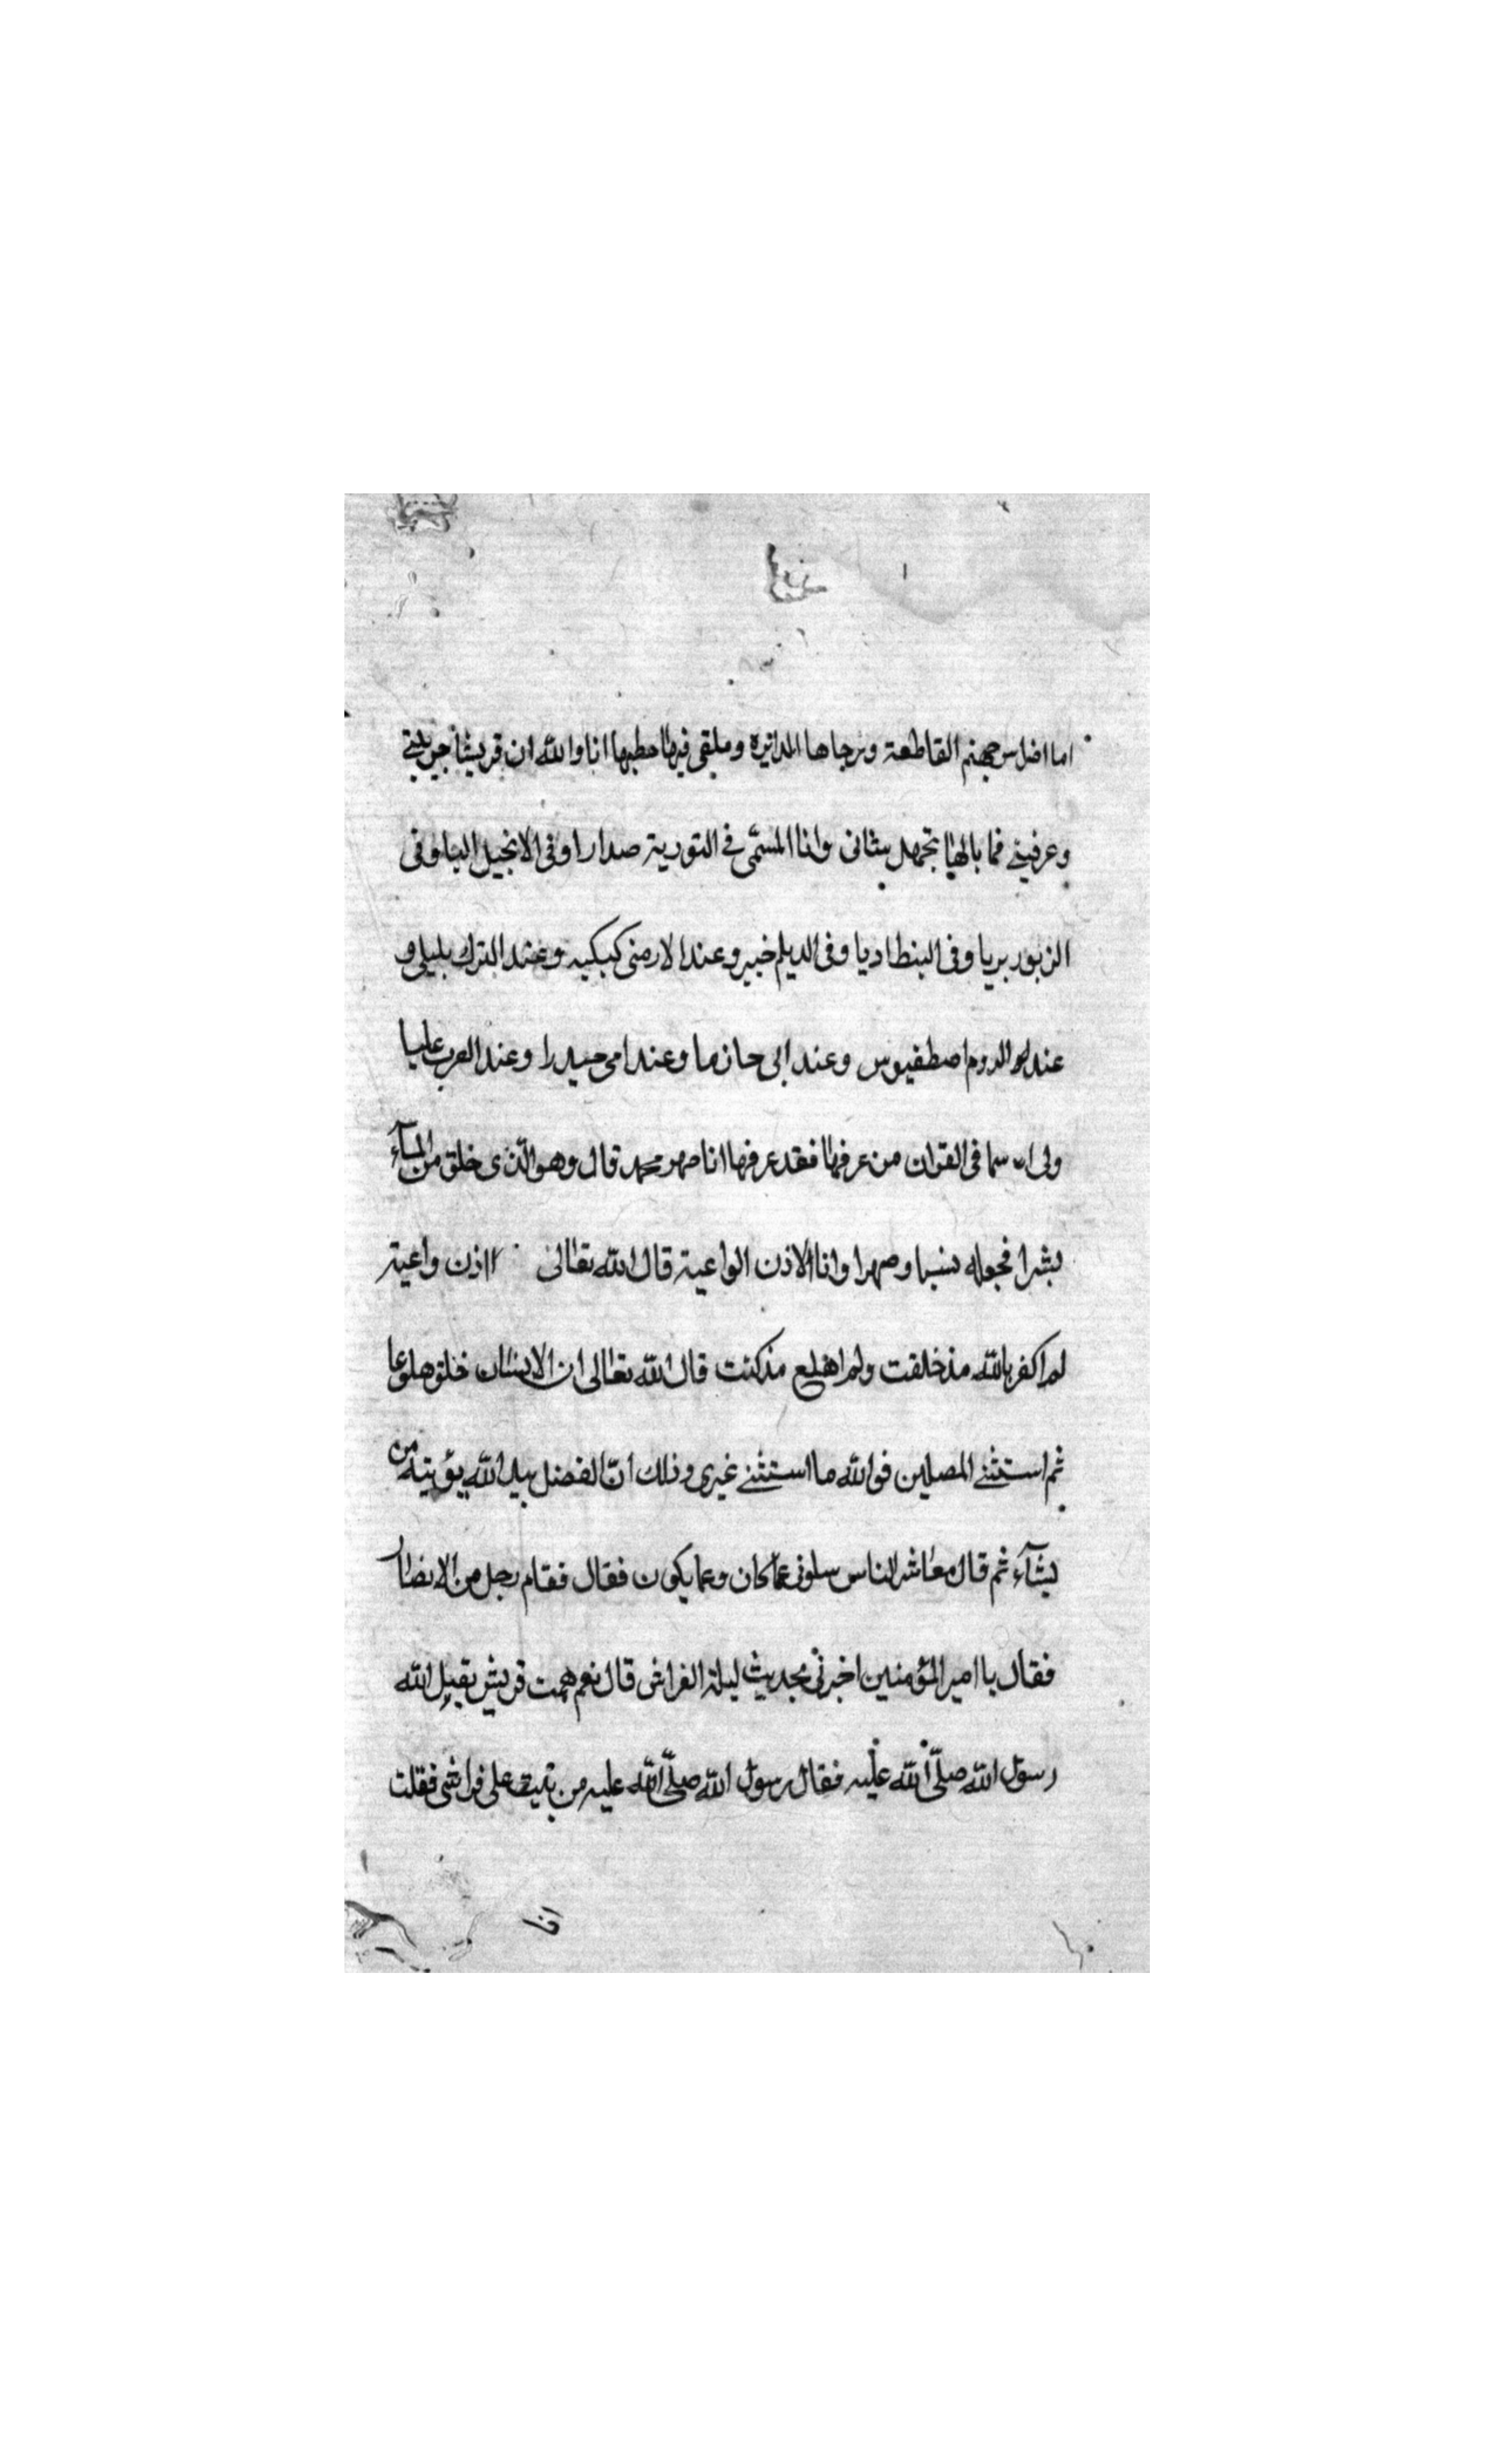 اما اضراس جهنم القاطعة ورجاها الدائرة وملقى فيها حطبها انا والله ان قريشا جربتنى
وعرفينى فما بالها تجهل بشانى وانا المسمّى فى التورية صدارا وفى الانجيل اليا وفى
الزبور بريا وفى البنطاديا وفى الديلم خبير وعند الارمنى كبكيه وعند الترك بليلى و
عند الروم اصطفيوس وعند ابى حازما وعند امى حيدرا وعند العرب عليا
ولى اسما فى القران من عرفها فقد عرفها انا صهر محمد قال وهو الّذى خلق من المآء
بشرا فجعله نسبا وصهرا وانا الاذن الواعية قال الله تعالى اذن واعية
لم اكفر بالله مذ خلقت ولم اهلع مذ كنت قال الله تعالى ان الانسان خلق هلوعا
ثم استثنى المصلين فوالله ما استثنى غيرى وذلك انّ الفضل بيد الله يؤتيه من
يشآء ثم قال معاشر الناس سلونى عما كان وعما يكون فقال فقام رجل من الانصار
فقال يا امير المؤمنين اخبرنى بحديث ليلة الفراش قال نعم همت قريش بقتل الله
رسول الله صلّى الله عليه فقال رسول الله صلّى الله عليه من يبيت على فراشى فقلت
انا